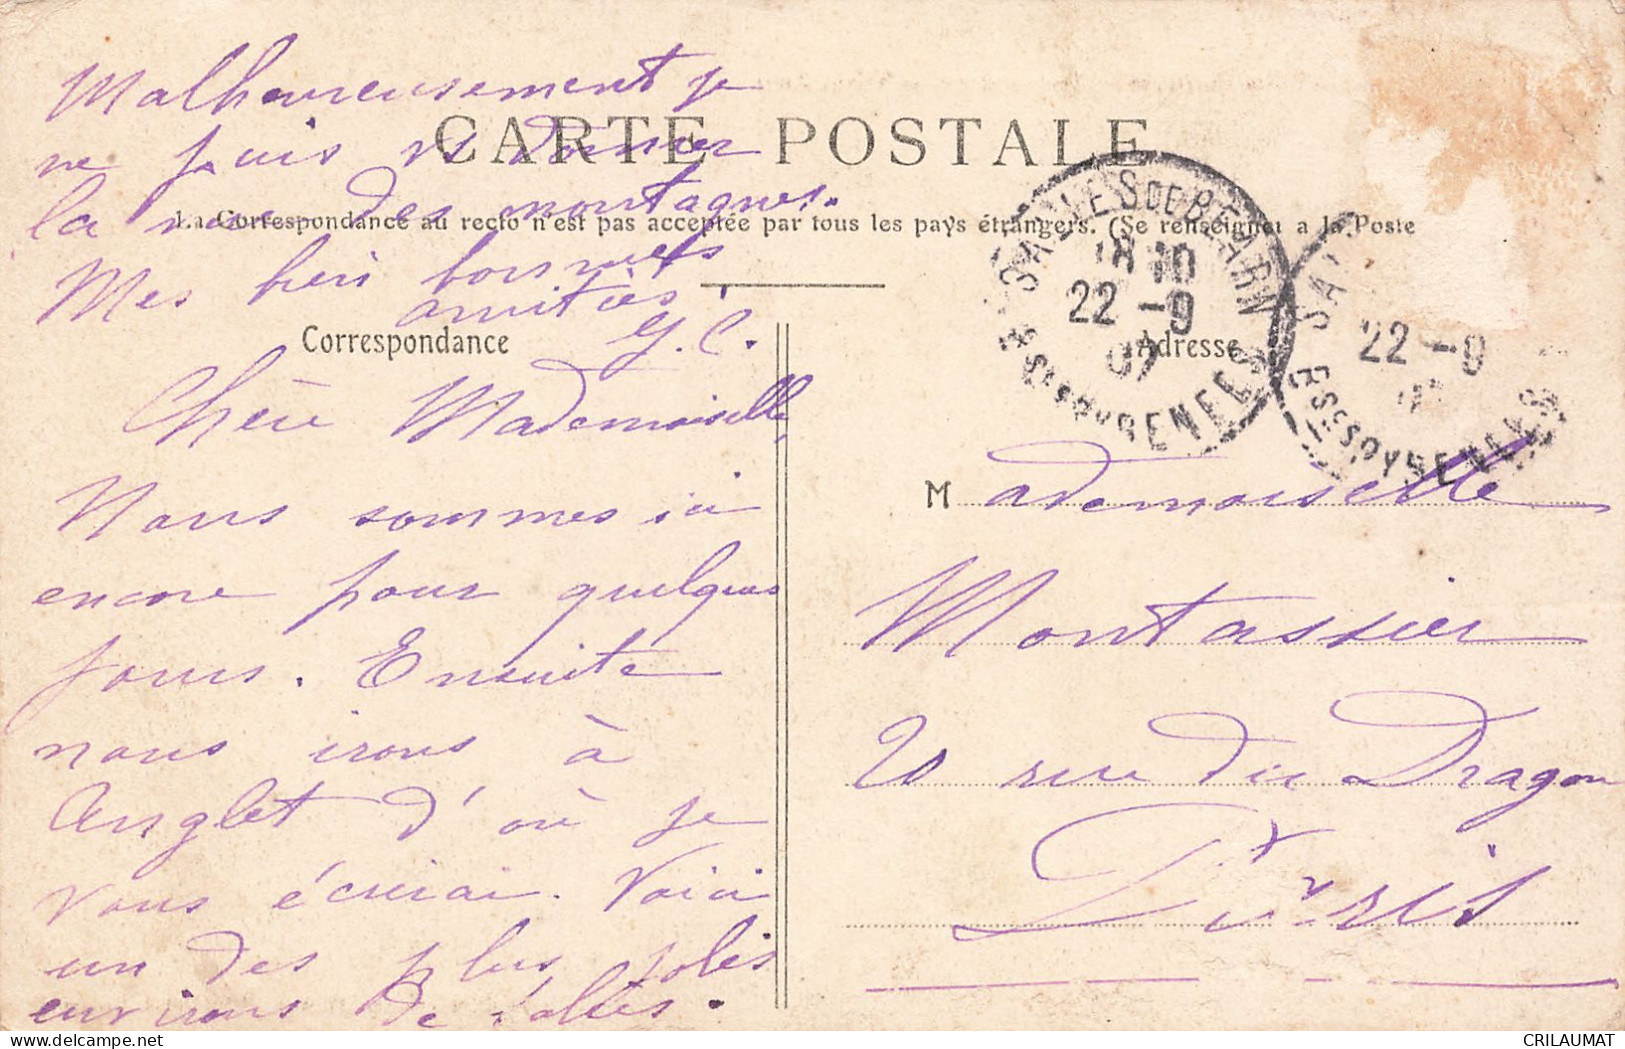 Malheureusement je
CARTE POSTALE
ne puis vs donner
la vue des montagnes.
La Correspondance au recto n'est pas acceptée par tous les pays étrangers. (Se renseigner a la Poste
Mes bien bons
amitiés
G. C.
Correspondance
Chère Mademoiselle,
Nous sommes ici
encore pour quelques
jours. Ensuite
nous irons à
Anglet d'où je
vous écrirai. Voici
un des plus jolis
environs de
SALIES DE BEARN
18 10
22 -9
07
BSES PYRENEES
22 -9
Adresse
Mademoiselle
Montassier
20 rue du Dragon
Paris
CRILAUMAT